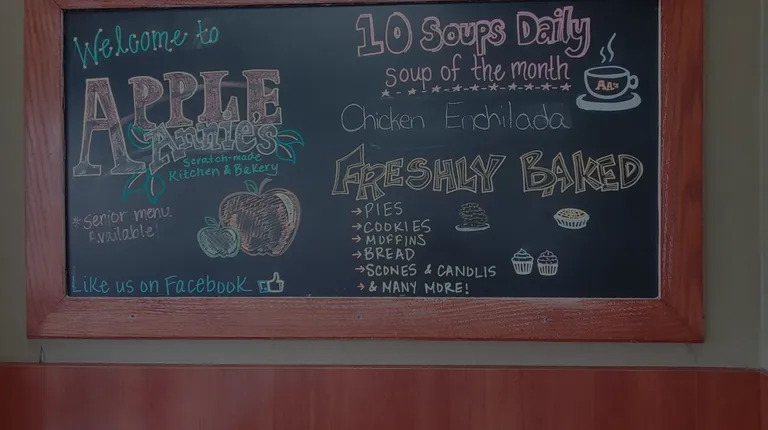 Welcome to
APPLE
Annie's
Scratch-made
Kitchen & Bakery
*Senior menu
Available!
Like us on Facebook
10 Soups Daily
soup of the month
AA's
Chicken Enchilada
FRESHLY BAKED
→PIES
→COOKIES
→MUFFINS
→BREAD
→SCONES & CANOLIS
→& MANY MORE!